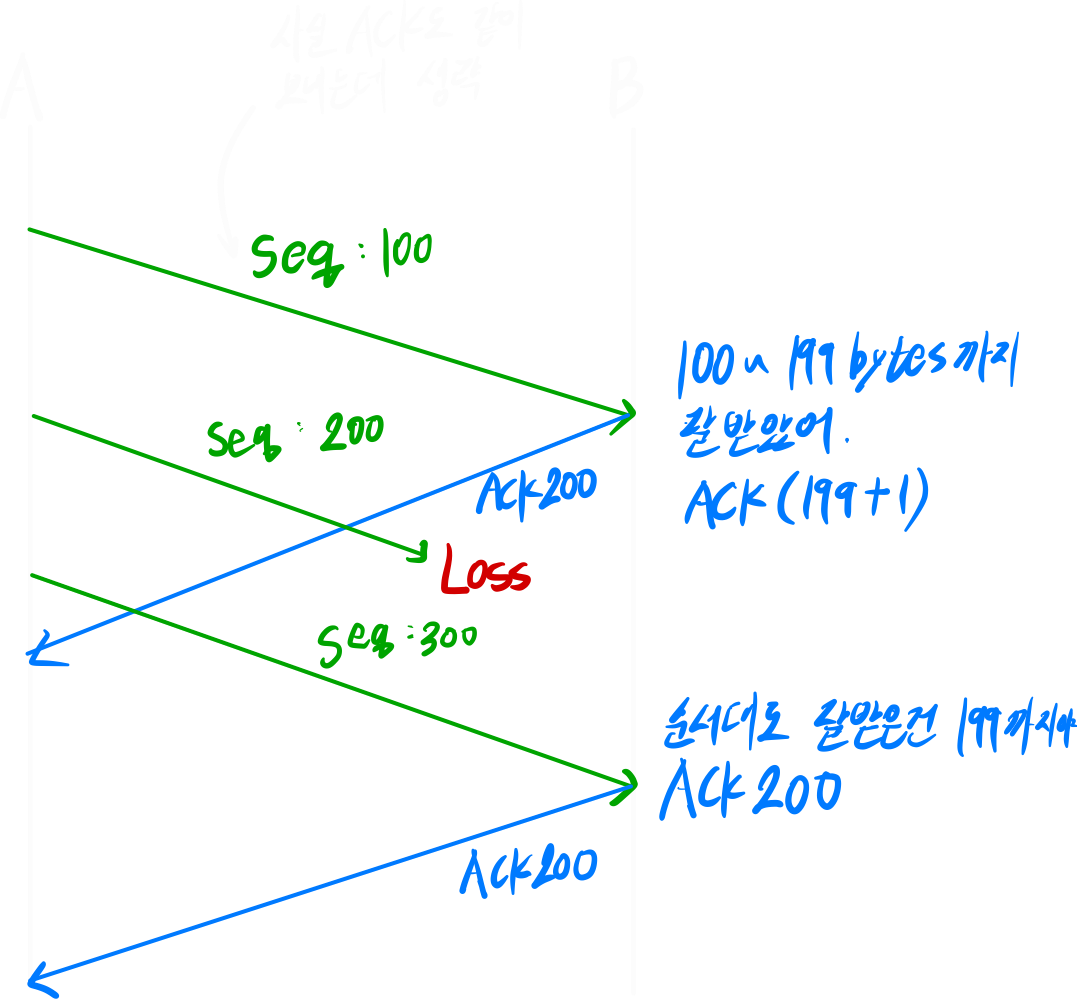 사실 ACK도 같이
보내는데 생략
A
B
Seq : 100
100~199 bytes까지
잘 받았어.
ACK (199+1)
Seq : 200
ACK200
Loss
Seq :300
순서대로 잘받은건 199까지야
ACK 200
ACK200